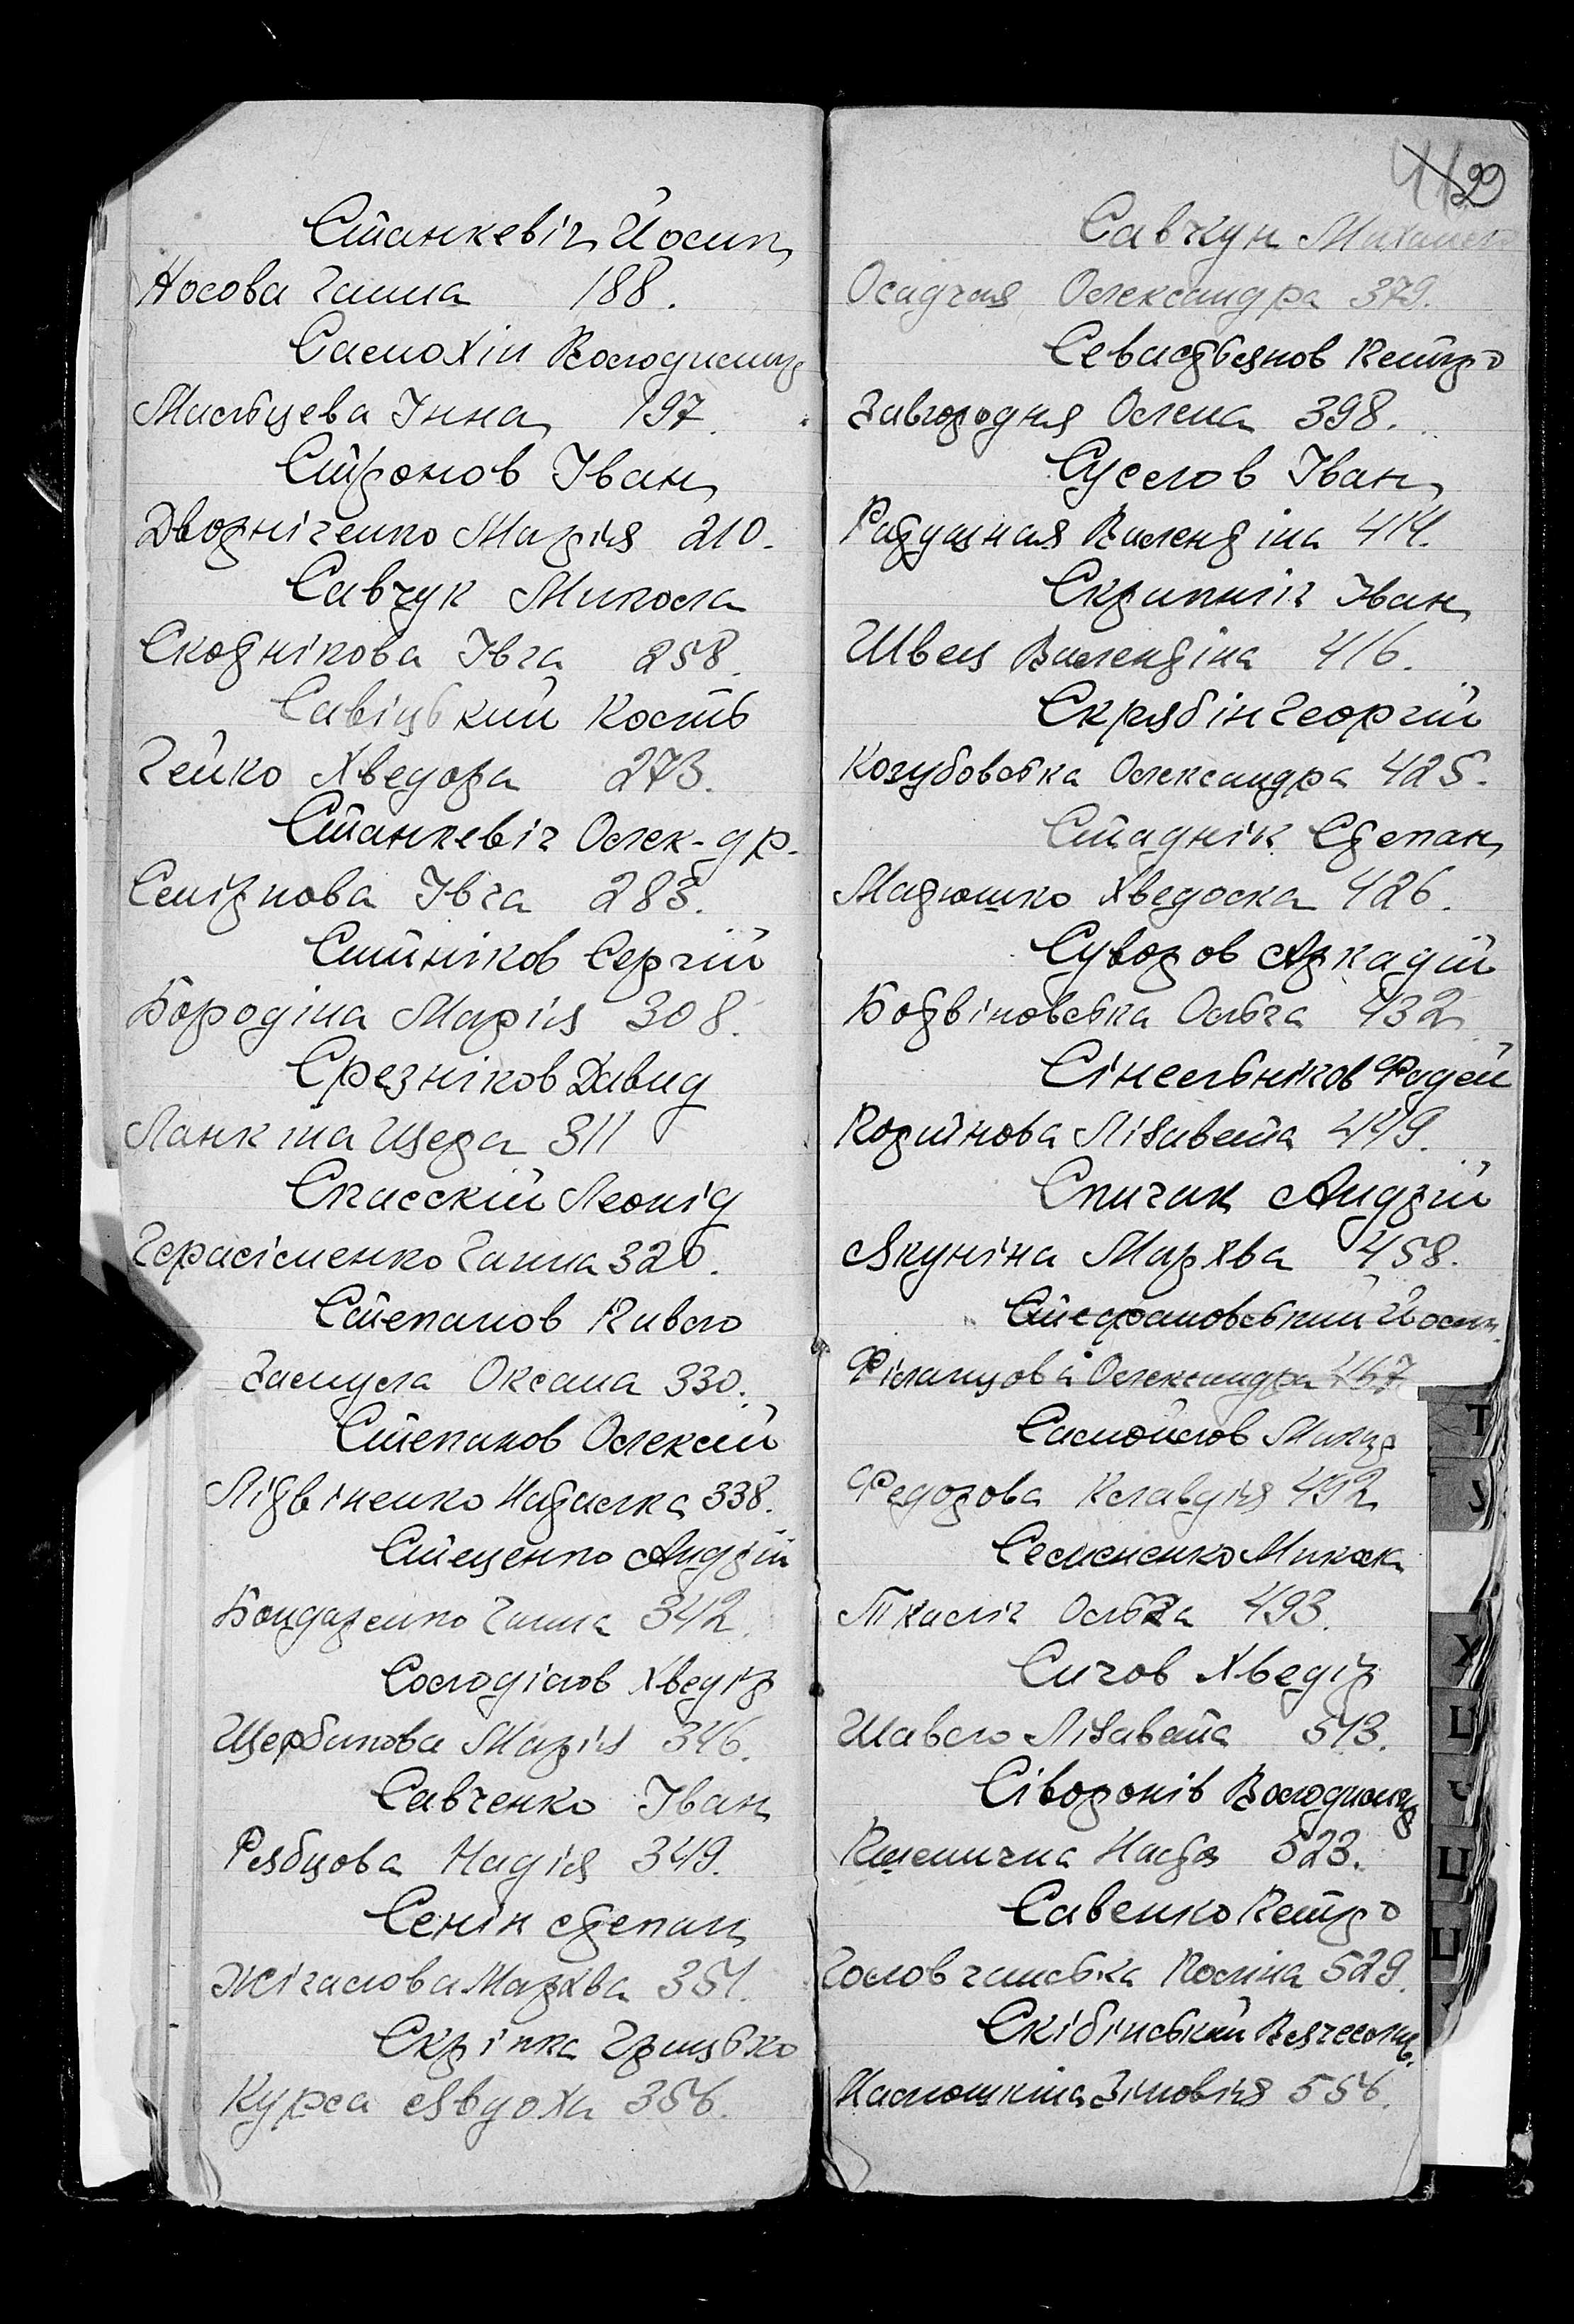 Станкевіч Йосип
Носова Ганна 188.
Самохін Володимир
Мальцева Інна 197.
Стронов Іван
Дворніченко Марія 210.
Савчук Микола
Скотнікова Івга 258.
Савіцький Кость
Гейко Хведора 273.
Станкевіч Олек-др.
Смірнова Івга 283.
Ситніков Сергій
Бородіна Марія 308.
Срезніков Давид
Ланкіна Щера 311
Спасскій Леонід
Герасіменко Ганна 320.
Степанов Павло
Замула Оксана 330.
Степанов Олексій
Літвіненко Наталка 338.
Стеценко Андрій
Бондаренко Ганна 342.
Солоділов Хведір
Щербакова Марія 346.
Савченко Іван
Рябцова Надія 349.
Сенін Степан
Жігалова Мархва 351.
Скріпка Грицько
Курса Явдоха 356.
29
Савчун Михайло
Осадчая Олександра 379.
Севастьянов Петро
Завгородня Олена 398.
Суслов Іван
Ратушная Валентіна 414.
Скрипнік Іван
Швец Валентіна 416.
Скрябін Георгій
Козубовська Олександра 425.
Стаднік Степан
Матюшко Хведоска 426.
Суворов Аркадій
Ботвіновська Ольга 432
Сінельніков Фадей
Портнова Лізавета 449.
Спичак Андрій
Якуніна Мархва 458.
Стефановський Йосип
Філатцова Олександра 467
Самойлов Макар
Федорова Клавдія 492
Семененко Микола
Ткаліч Ольга 493.
Сичов Хведір
Шавло Лізавета 513.
Сіворонів Володимир
Пшенична Настя 523.
Савенко Петро
Головчанська Поліна 529.
Скібінський Вячеслав
Намошкіна Зіновія 556.
Т
Х
Ц
Ч